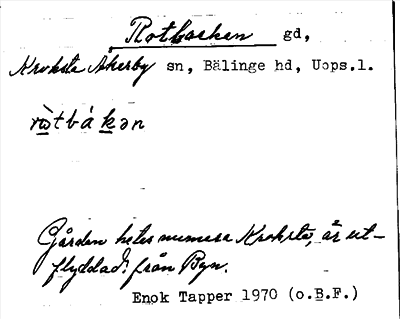 Rotbacken gd,
Kroksta Åkerby sn, Bälinge hd, Upps.l.
rὼtbákən
Gården heter numera Kroksta, är ut-
flyddad från Byn.
Enok Tapper 1970 (o.B.F.)